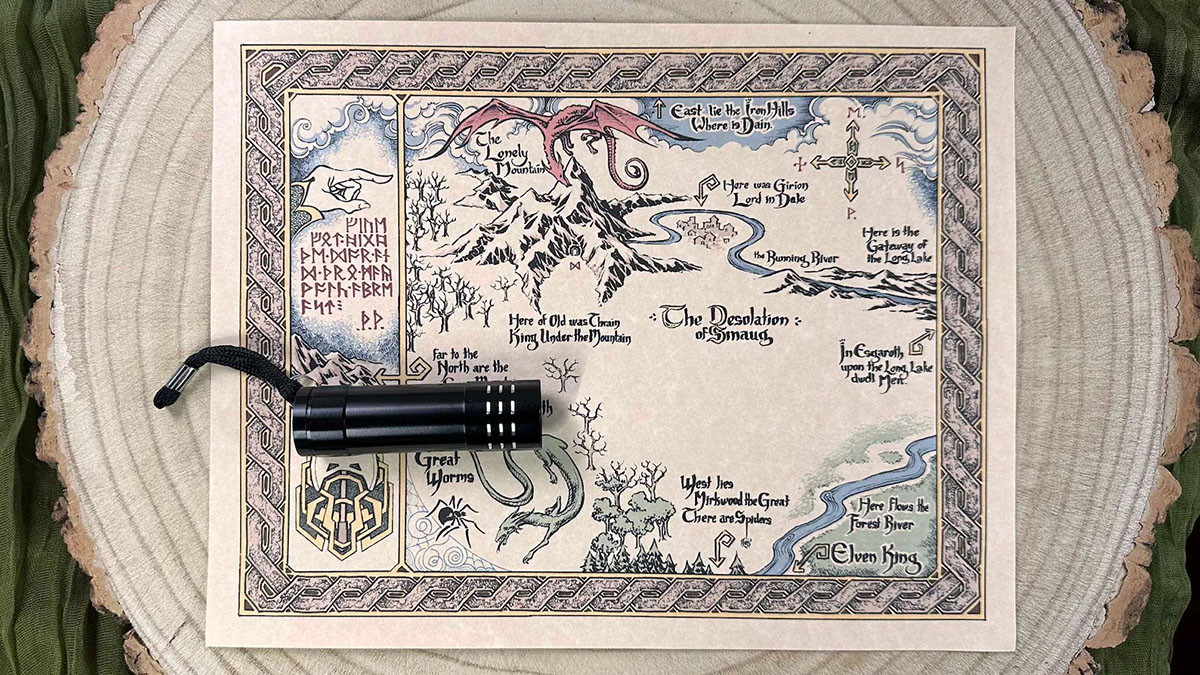 East lie the Iron Hills
Where is Dain.
The
Lonely
Mountain
ᛖ
ᚾ
ᛋ
ᚹ
Here was Girion
Lord in Dale
ᚠᛁᚢᛖ
ᚠᛟᛏ·ᚻᛁᚷᚻ
ᚦᛖ·ᛞᚩᚱ·ᚪᚾ
ᛞ·ᚦᚱᛟ·ᛗᚪᚣ
ᚹᚪᛚᚳ·ᚪᛒᚱᛖ
ᚪᛋᛏ⋮
ᚦ·ᚦ·
Here is the
Gateway of
the Long Lake
the Running River
ᛞ
Here of Old was Thrain
King Under the Mountain
The Desolation
of Smaug
In Esgaroth
upon the Long Lake
dwell Men.
Far to the
North are the
Great
Worms
West lies
Mirkwood the Great
There are Spiders
Here flows the
Forest River
Elven King